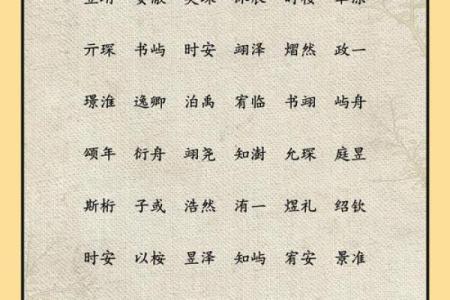 亓琛 书屿 时安 翊泽 熠然 政一
璟淮 逸卿 泊禹 宥临 书翊 屿舟
颂年 衍舟 翊尧 知澍 允琛 庭昱
斯桁 子或 浩然 洧一 煜礼 绍钦
时安 以桉 昱泽 知屿 宥安 景淮